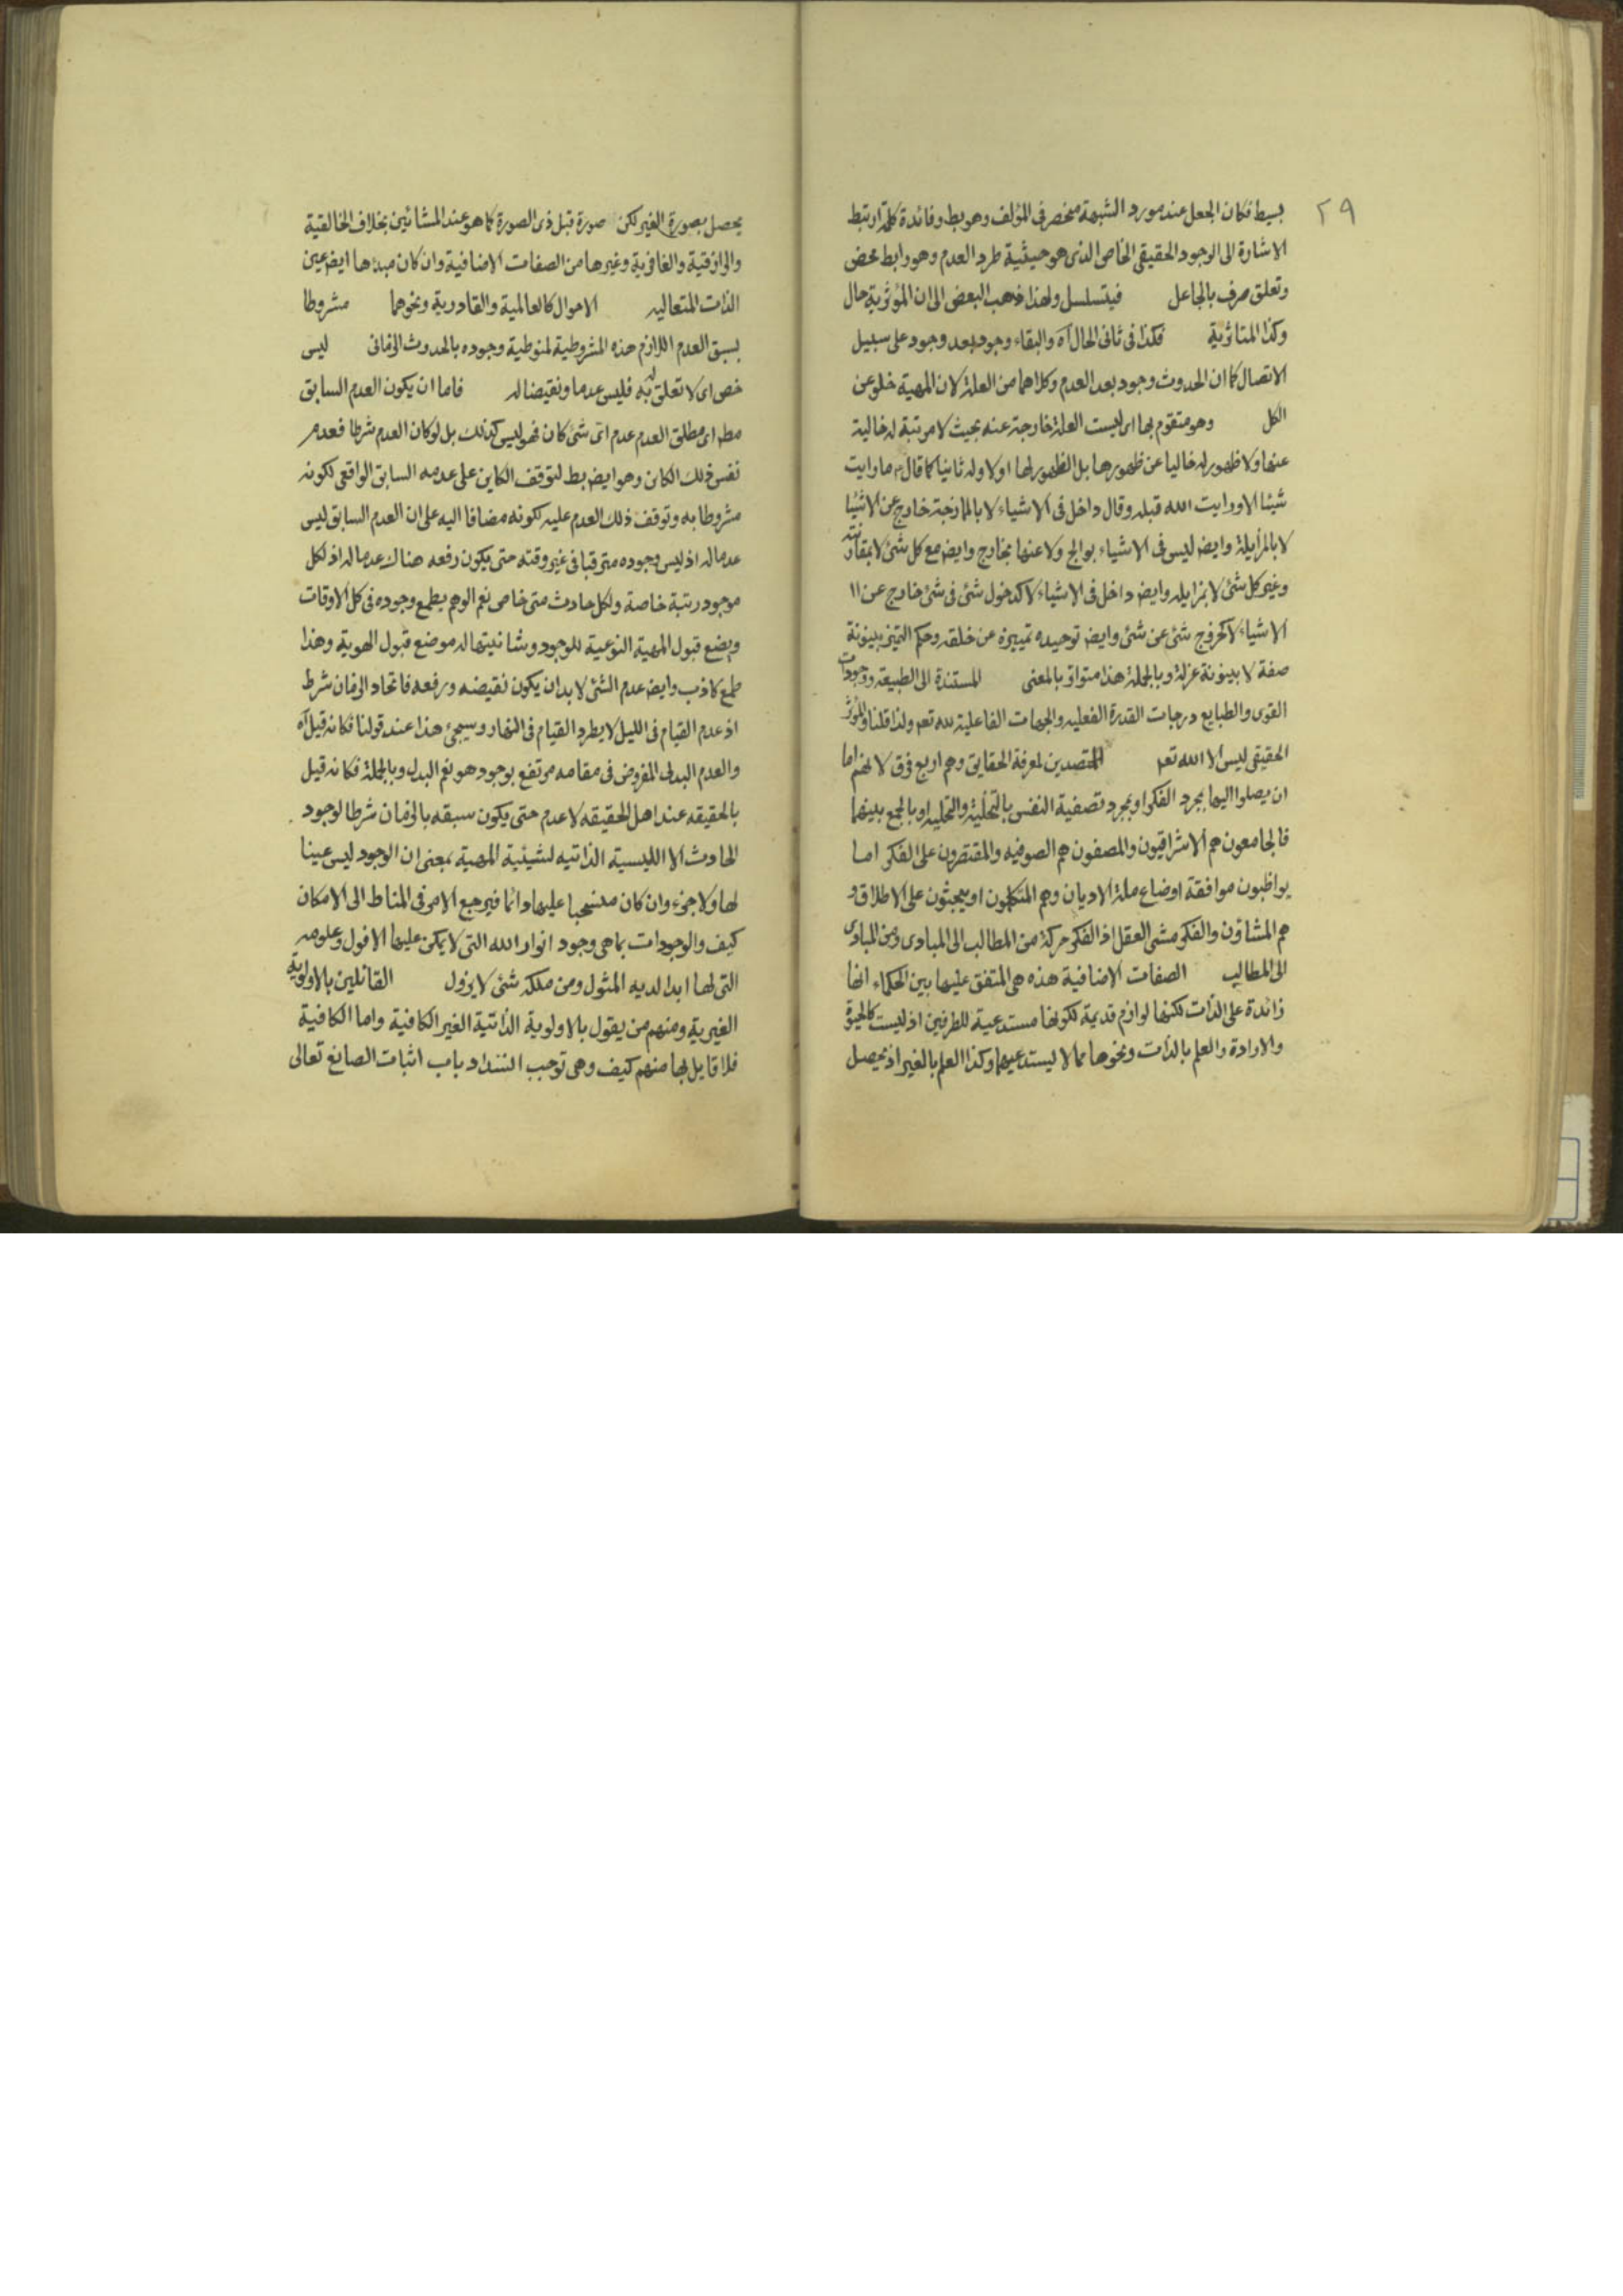 ٢٩
بسيط فكان الجعل عند مورد الشبهة منحصر فى المؤلف وهو بط وفائدة كلمة ارتبط
الاشارة الى الوجود الحقيقى الخاص الذى هو حيثية طرد العدم وهو رابط محض
وتعلق صرف بالجاعل فيتسلسل ولهذا ذهب البعض الى ان المؤثرية حال
وكذا المتاثرية فكذا فى ثانى الحال آه والبقاء وجود بعد وجود على سبيل
الاتصال كما ان الحدوث وجود بعد العدم وكلاهما من العلة لان المهية خلو عن
الكل وهو متقوم بها اى ليست العلة خارجة عنه بحيث لا مرتبة له خالية
عنها ولا ظهور له خاليا عن ظهورها بل الظهور لها اولا وله ثانيا كما قال ما رايت
شيئا الا ورايت الله قبله وقال داخل فى الاشياء لا بالممازجة خارج عن الاشيا
لا بالمزايلة وايض ليس فى الاشياء بوالج ولا عنها بخارج وايض مع كل شئ لا بمقارنته
وغير كل شئ لا بمزايله وايض داخل فى الاشياء لا كدخول شئ فى شئ خارج عن ١١
الاشياء لا كخروج شئ عن شئ وايض توحيده تمييزه عن خلقه وحكم التميز بينونة
صفة لا بينونة عزلة وبالجملة هذا متواتر بالمعنى المستندة الى الطبيعة ووجودات
القوى والطبايع درجات القدرة الفعليه والجهات الفاعلية لله تعم ولذا قلنا والمؤثر
الحقيقى ليس الا الله تعم المتصدين لمعرفة الحقايق وهم اربع فرق لانهم اما
ان يصلوا اليها بمجرد الفكر او بمجرد تصفية النفس بالتخلية والتحليه او بالجمع بينهما
فالجامعون هم الاشراقيون والمصفون هم الصوفيه والمقتصرون على الفكر اما
يواظبون موافقة اوضاع ملة الاديان وهم المتكلمون او يبحثون على الاطلاق و
هم المشاؤن والفكر مشى العقل اذ الفكر حركة من المطالب الى المبادى ومن المبادى
الى المطالب الصفات الاضافية هذه هى المتفق عليها بين الحكماء انها
زائدة على الذات لكنها لوازم قديمة لكونها مستدعية للطرفين اذ ليست كالحيوة
والارادة والعلم بالذات ونحوها مما لا يستدعيهما وكذا العلم بالغير اذ يحصل
يحصل بصورة الغير لكن صورة قبل ذى الصورة كما هو عند المشائين بخلاف الخالقية
والرازقية والغافرية وغيرها من الصفات الاضافية وان كان مبدءها ايض عين
الذات المتعاليه الاموال كالعالمية والقادرية ونحوهما مشروطا
بسبق العدم اللازم هذه المشروطية لمنوطية وجوده بالحدوث الزمانى ليس
خص اى لا تعلق له به فليس عدما ونقيضا له فاما ان يكون العدم السابق
مطم اى مطلق العدم عدم اى شئ كان فهو ليس كذلك بل لو كان العدم شرطا فعدم
نفس ذلك الكائن وهو ايض بط لتوقف الكاين على عدمه السابق الواقعى لكونه
مشروطا به وتوقف ذلك العدم عليه لكونه مضافا اليه على ان العدم السابق ليس
عدما له اذ ليس وجوده مترقبا فى غير وقته حتى يكون رفعه هناك عدما له اذ لكل
موجود رتبة خاصة ولكل حادث متى خاص نعم الوهم يطمع وجوده فى كل الاوقات
ويضع قبول المهية النوعية للوجود وشانيتها له موضع قبول الهوية وهذا
طمع كاذب وايض عدم الشئ لا بد ان يكون نقيضه ورفعه فاتحاد الزمان شرط
اذ عدم القيام فى الليل لا يطرد القيام فى النهار وسيجئ هذا عند قولنا فكانه قيل آه
والعدم البدلى المفروض فى مقامه مرتفع بوجود هو نعم البدل وبالجملة فكانه قيل
بالحقيقه عند اهل الحقيقه لا عدم حتى يكون سبقه بالزمان شرطا لوجود
الحادث الا الليسية الذاتيه لشيئية المهية بمعنى ان الوجود ليس عينا
لها ولا جزء وان كان منسحبا عليها دائما فيرجع الامر فى المناط الى الامكان
كيف والوجودات بما هى وجود انوار الله التى لا يمكن عليها الافول وعلومه
التى لها ابدا لديه المثول ومن ملكه شئ لا يزول القائلين بالاولوية
الغيرية ومنهم من يقول بالاولوية الذاتية الغير الكافية واما الكافية
فلا قايل بها منهم كيف وهى توجب انسداد باب اثبات الصانع تعالى